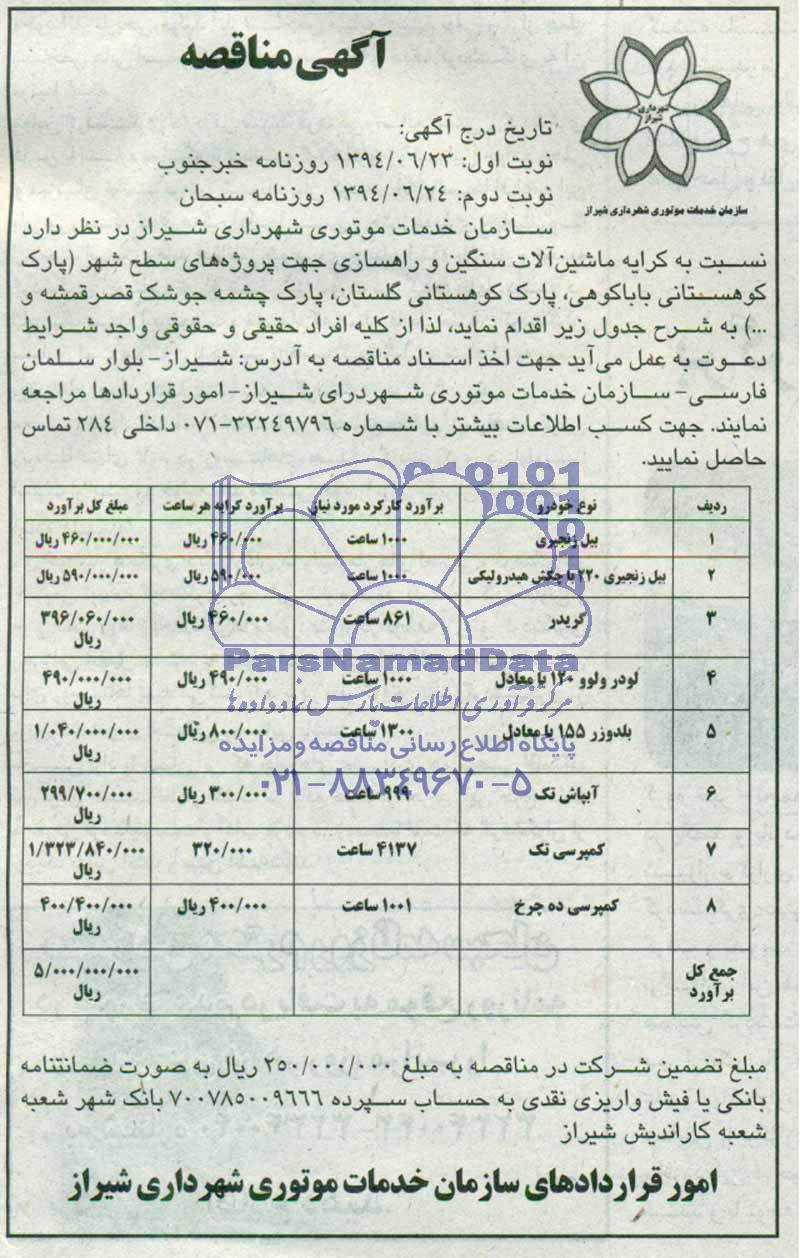 آگهی مناقصه
شهرداری
شیراز
سازمان خدمات موتوری شهرداری شیراز
تاریخ درج آگهی:
نوبت اول: ۱۳۹۴/۰۶/۲۳ روزنامه خبرجنوب
نوبت دوم: ۱۳۹۴/۰۶/۲۴ روزنامه سبحان
سازمان خدمات موتوری شهرداری شیراز در نظر دارد
نسبت به کرایه ماشین‌آلات سنگین و راهسازی جهت پروژه‌های سطح شهر (پارک
کوهستانی باباکوهی، پارک کوهستانی گلستان، پارک چشمه جوشک قصرقمشه و
...) به شرح جدول زیر اقدام نماید، لذا از کلیه افراد حقیقی و حقوقی واجد شرایط
دعوت به عمل می‌آید جهت اخذ اسناد مناقصه به آدرس: شیراز- بلوار سلمان
فارسی- سازمان خدمات موتوری شهردرای شیراز- امور قراردادها مراجعه
نمایند. جهت کسب اطلاعات بیشتر با شماره ۳۲۲۴۹۷۹۶-۰۷۱ داخلی ۲۸۴ تماس
حاصل نمایید.
ردیف نوع خودرو برآورد کارکرد مورد نیاز برآورد کرایه هر ساعت مبلغ کل برآورد
۱ بیل زنجیری ۱۰۰۰ ساعت ۴۶۰/۰۰۰ ریال ۴۶۰/۰۰۰/۰۰۰ ریال
۲ بیل زنجیری ۲۲۰ با چکش هیدرولیکی ۱۰۰۰ ساعت ۵۹۰/۰۰۰ ریال ۵۹۰/۰۰۰/۰۰۰ ریال
۳ گریدر ۸۶۱ ساعت ۴۶۰/۰۰۰ ریال ۳۹۶/۰۶۰/۰۰۰
ریال
۴ لودر ولوو ۱۲۰ یا معادل ۱۰۰۰ ساعت ۴۹۰/۰۰۰ ریال ۴۹۰/۰۰۰/۰۰۰
ریال
۵ بلدوزر ۱۵۵ یا معادل ۱۳۰۰ ساعت ۸۰۰/۰۰۰ ریال ۱/۰۴۰/۰۰۰/۰۰۰
ریال
۶ آبپاش تک ۹۹۹ ساعت ۳۰۰/۰۰۰ ریال ۲۹۹/۷۰۰/۰۰۰
ریال
۷ کمپرسی تک ۴۱۳۷ ساعت ۳۲۰/۰۰۰ ۱/۳۲۳/۸۴۰/۰۰۰
ریال
۸ کمپرسی ده چرخ ۱۰۰۱ ساعت ۴۰۰/۰۰۰ ریال ۴۰۰/۴۰۰/۰۰۰
ریال
جمع کل
برآورد ۵/۰۰۰/۰۰۰/۰۰۰
ریال
مبلغ تضمین شرکت در مناقصه به مبلغ ۲۵۰/۰۰۰/۰۰۰ ریال به صورت ضمانتنامه
بانکی یا فیش واریزی نقدی به حساب سپرده ۷۰۰۷۸۵۰۰۹۶۶۶ بانک شهر شعبه
شعبه کاراندیش شیراز
امور قراردادهای سازمان خدمات موتوری شهرداری شیراز
ParsNamadData
مرکز فرآوری اطلاعات پارس نماد داده‌ها
پایگاه اطلاع رسانی مناقصه و مزایده
۰۲۱-۸۸۳۴۹۶۷۰-۵